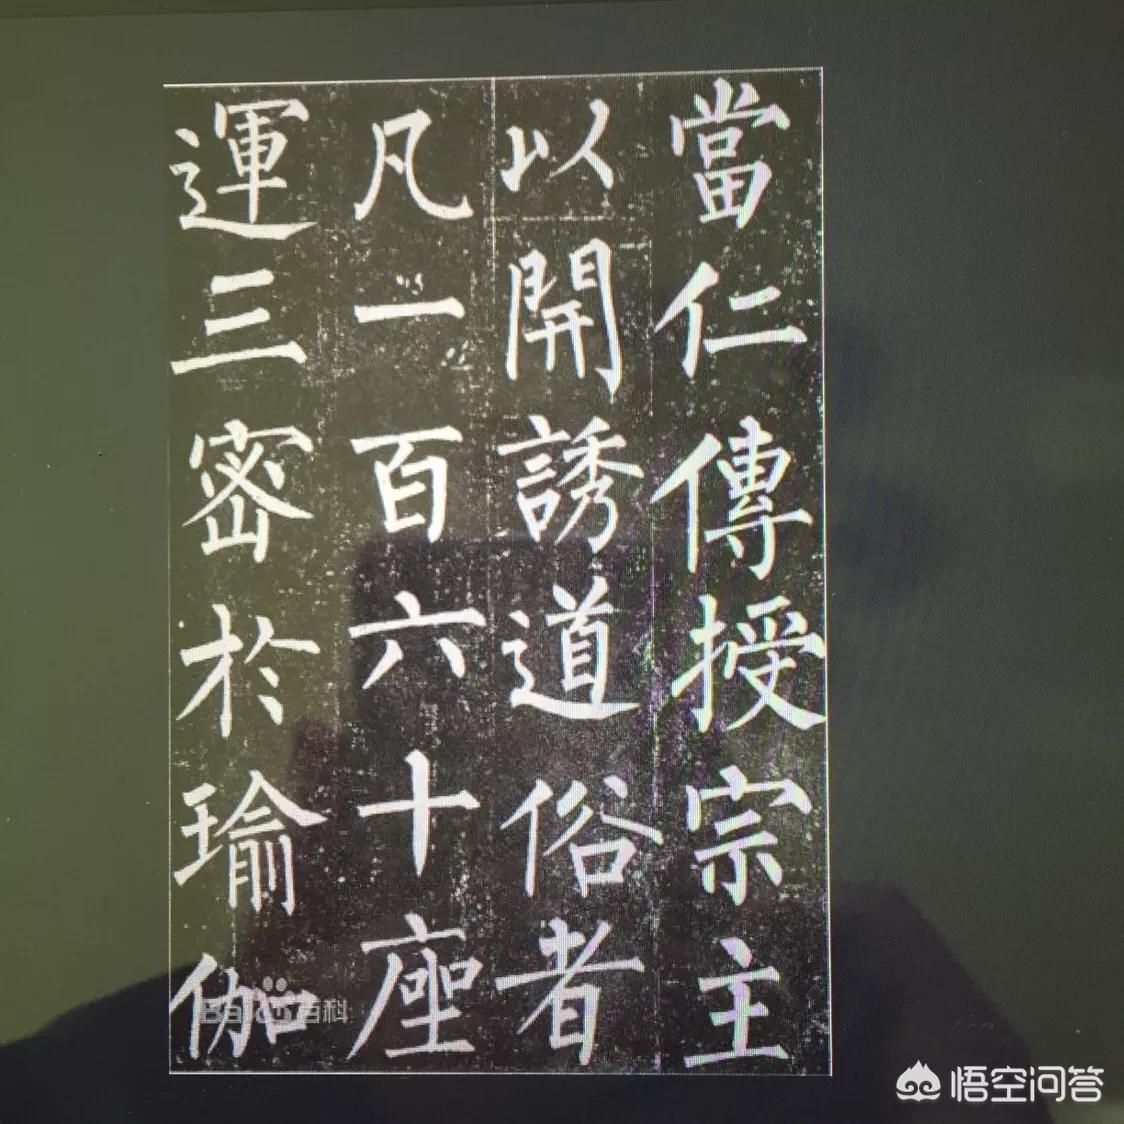 當仁傳授宗主
以開誘道俗者
凡一百六十座
運三密於瑜伽
Bai 百科
悟空问答